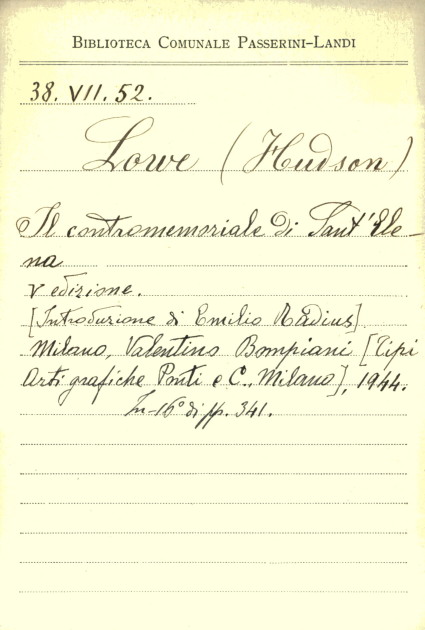 Biblioteca Comunale Passerini-Landi
38. VII. 52.
Lowe (Hudson)
Il contromemoriale di Sant'Ele-
na
V edizione.
[Introduzione di Emilio Radius]
Milano, Valentino Bompiani [Tipi
Arti grafiche Ponti e C., Milano], 1944.
In-16° di pp. 341.